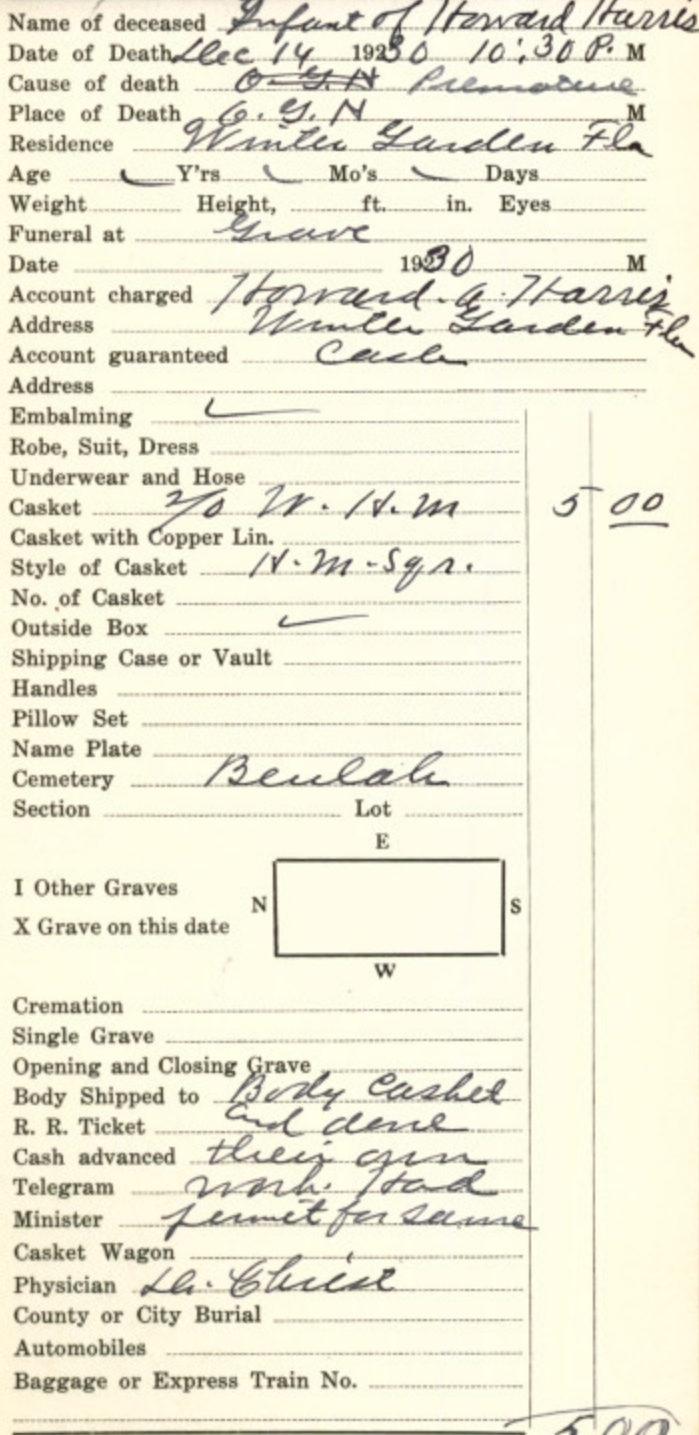 Name of deceased Infant of Howard Harris
Date of Death Dec 14 1930 10:30 P. M
Cause of death O. G. H Premature
Place of Death O. G. H M
Residence Winter Garden Fla
Age Y'rs Mo's Days
Weight Height, ft. in. Eyes
Funeral at Grave
Date 1930 M
Account charged Howard. a. Harris
Address Winter Garden Fla
Account guaranteed Cash
Address
Embalming
Robe, Suit, Dress
Underwear and Hose
Casket 2/0 W. H. M 5 00
Casket with Copper Lin.
Style of Casket H-M-Sqr.
No. of Casket
Outside Box
Shipping Case or Vault
Handles
Pillow Set
Name Plate
Cemetery Beulah
Section Lot
E
I Other Graves
N S
X Grave on this date
W
Cremation
Single Grave
Opening and Closing Grave
Body Shipped to Body Casket
R. R. Ticket and done
Cash advanced their own
Telegram work. Had
Minister permit for same
Casket Wagon
Physician Dr. Christ
County or City Burial
Automobiles
Baggage or Express Train No.
5 00